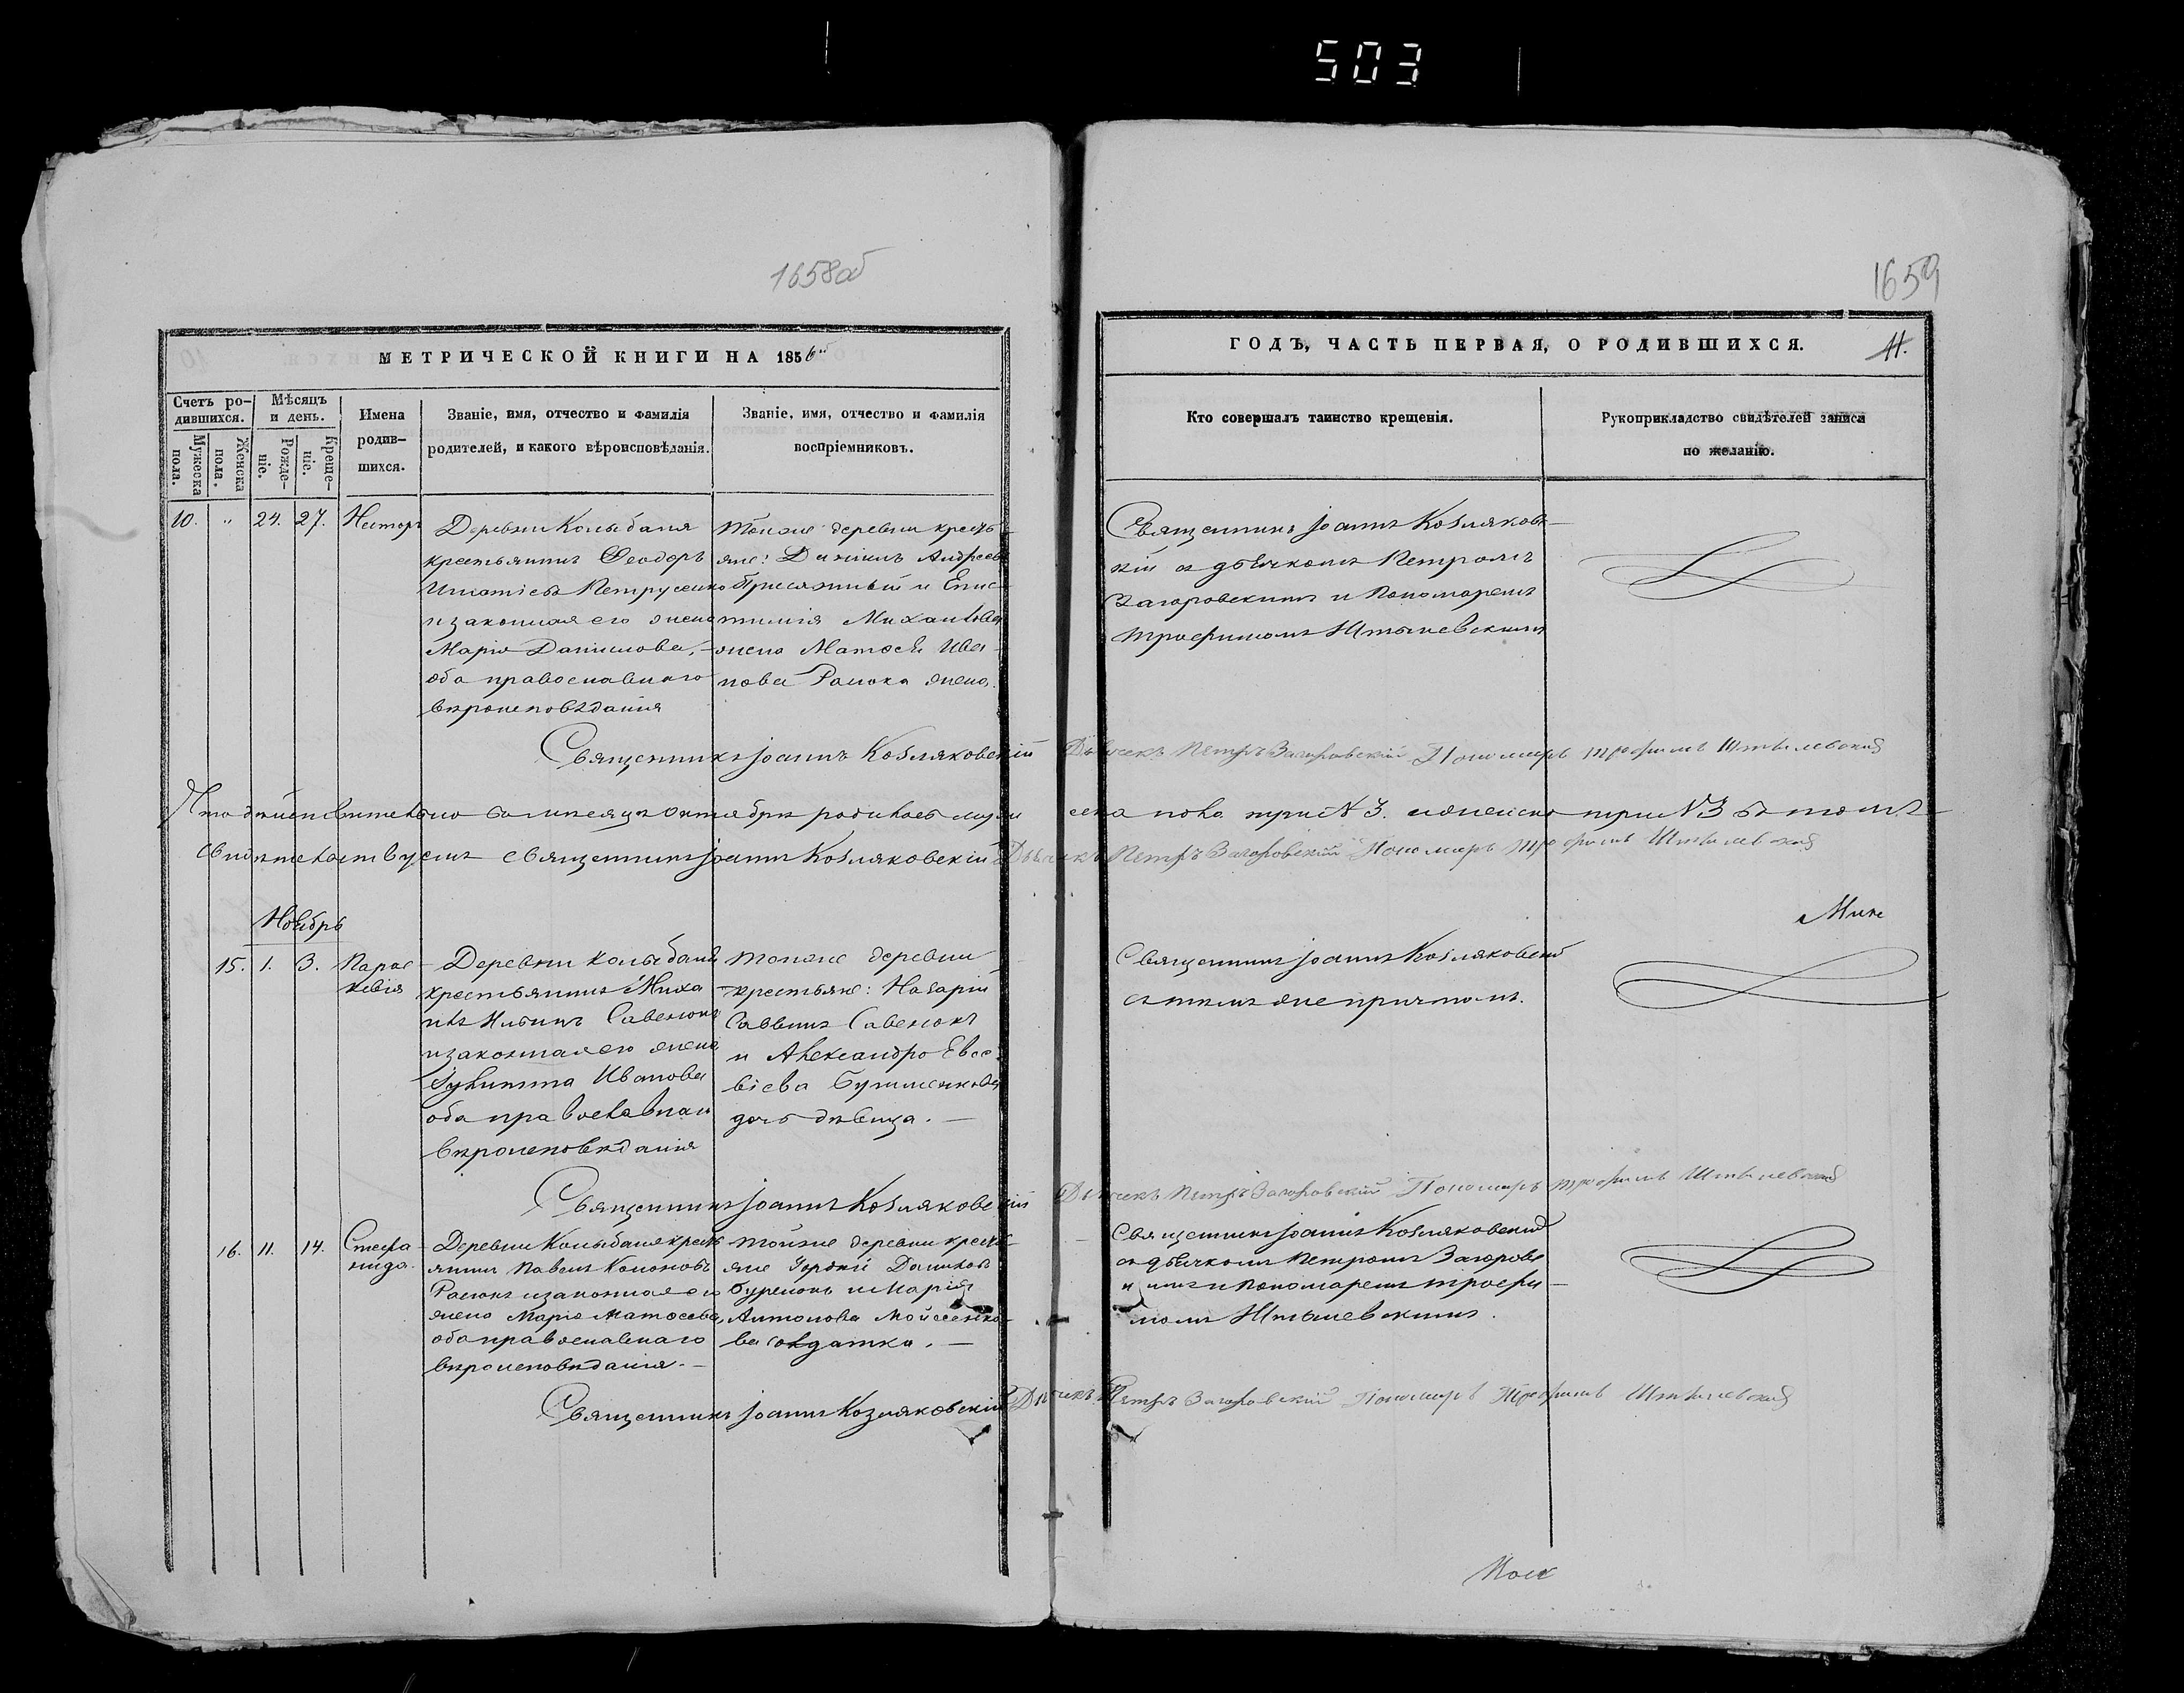 503
1658об
1659
МЕТРИЧЕСКОЙ КНИГИ НА 1856й
ГОДЪ, ЧАСТЬ ПЕРВАЯ, О РОДИВШИХСЯ.
11.
Счетъ ро-
дившихся.
Мужеска
пола.
Женска
пола.
Мѣсяцъ
и день.
Рожде-
ніе.
Креще-
ніе.
Имена
родив-
шихся.
Званіе, имя, отчество и фамилія
родителей, и какого вѣроисповѣданія.
Званіе, имя, отчество и фамилія
воспріемниковъ.
Кто совершалъ таинство крещенія.
Рукоприкладство свидѣтелей записи
по желанію.
10. " 24. 27. Несторъ
Деревни Колыбаня
крестьянинъ Ѳеодоръ
Игнатіевъ Петрусенко
и законная его жена
Марія Даніилова, –
оба православнаго
вѣроисповѣданія
тойже деревни кресть-
яне: Даніилъ Андреевъ
Присяжный и Епис-
тимія Михаилова
жена Матѳей Ива-
нова Ралока жена.
Священникъ Іоаннъ Козляковс-
кій съ дьячкомъ Петромъ
Загоровскимъ и Пономаремъ
Трофимомъ Штылевскимъ
Священникъ Іоаннъ Козляковскій Дьячекъ Петръ Загоровскій Пономарь Трофимъ Штылевскій
Что дѣйствительно въ мѣсяцѣ Октябрѣ родилось мужеска пола три № 3. и женска три № 3 въ томъ
свидѣтельствуемъ Священникъ Іоаннъ Козляковскій Дьячекъ Петръ Загоровскій Пономарь Трофимъ Штылевскій
Ноябрь
15. 1. 3. Парас-
кевія
Деревни Колыбаня
крестьянинъ Миха
илъ Ильинъ Савенокъ
и законная его жена
Іулитта Иванова
оба православнаго
вѣроисповѣданія
тойже деревни
крестьяне: Назарій
Саввинъ Савенокъ
и Александра Евсе-
віева
дочь дѣвица. –
Священникъ Іоаннъ Козляковскій
съ тѣмъ же причтомъ.
Священникъ Іоаннъ Козляковскій Дьячекъ Петръ Загоровскій Пономарь Трофимъ Штылевскій
16. 11. 14. Стефа-
нида.
Деревни Колыбаня кресть
янинъ Павелъ Кононовъ
Ралокъ и законная его
жена Марія Матѳеева,
оба православнаго
вѣроисповѣданія. –
тойже деревни кресть-
яне Гордѣй Даниловъ
Буренокъ и Марія
Антонова Мойсеенко-
ва солдатка. –
Священникъ Іоаннъ Козляковскій
съ дьячкомъ Петромъ Загоровс
кимъ и Пономаремъ Трофи-
момъ Штылевскимъ.
Священникъ Іоаннъ Козляковскій Дьячекъ Петръ Загоровскій Пономарь Трофимъ Штылевскій